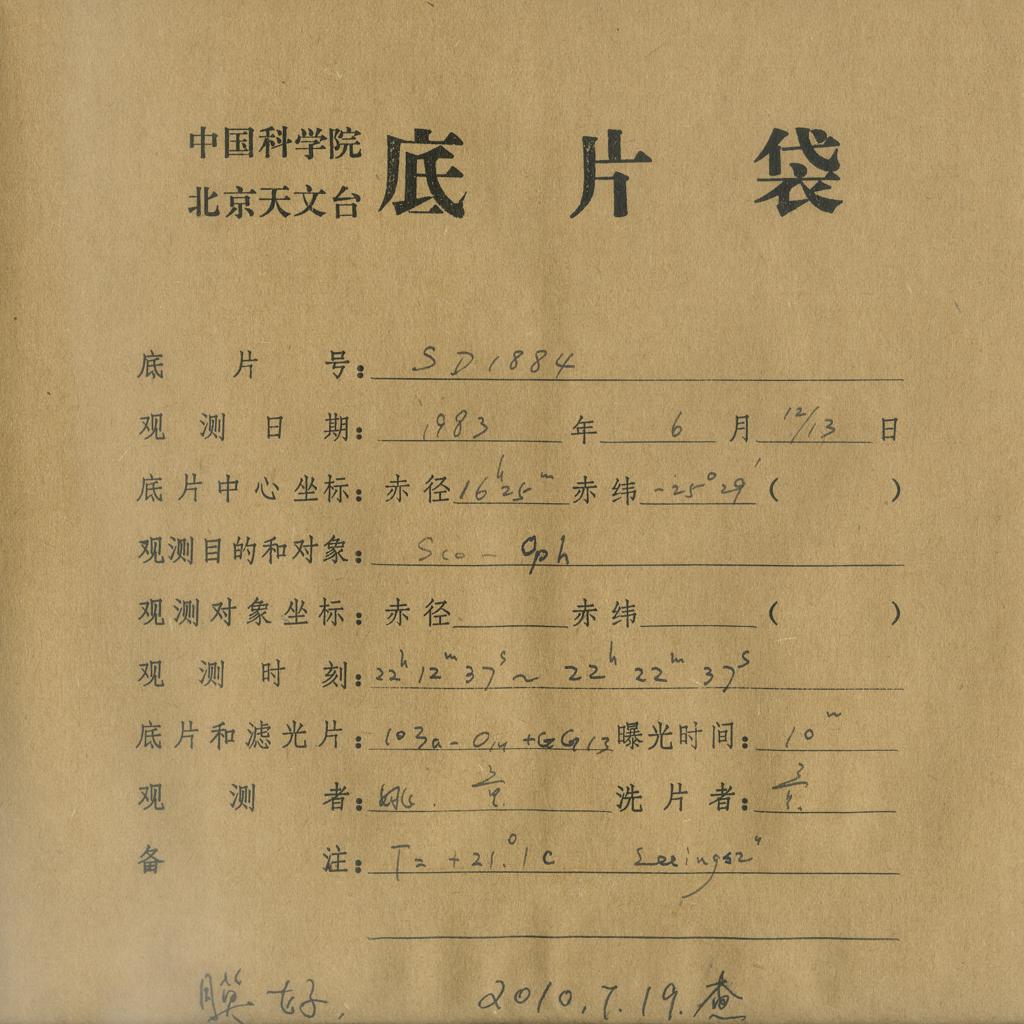 中国科学院
北京天文台 底片袋
底片号: SD1884
观测日期: 1983年 6月 12/13日
底片中心坐标: 赤径 16h25m 赤纬 -25°29′ ( )
观测目的和对象: Sco - Oph
观测对象坐标: 赤径 赤纬 ( )
观测时刻: 22h12m37s ~ 22h22m37s
底片和滤光片: 103a-O +GG13 曝光时间: 10m
观测者: 姚. 洗片者:
备注: T= +21.°1C Seeing≤2"
膜好. 2010.7.19. 查